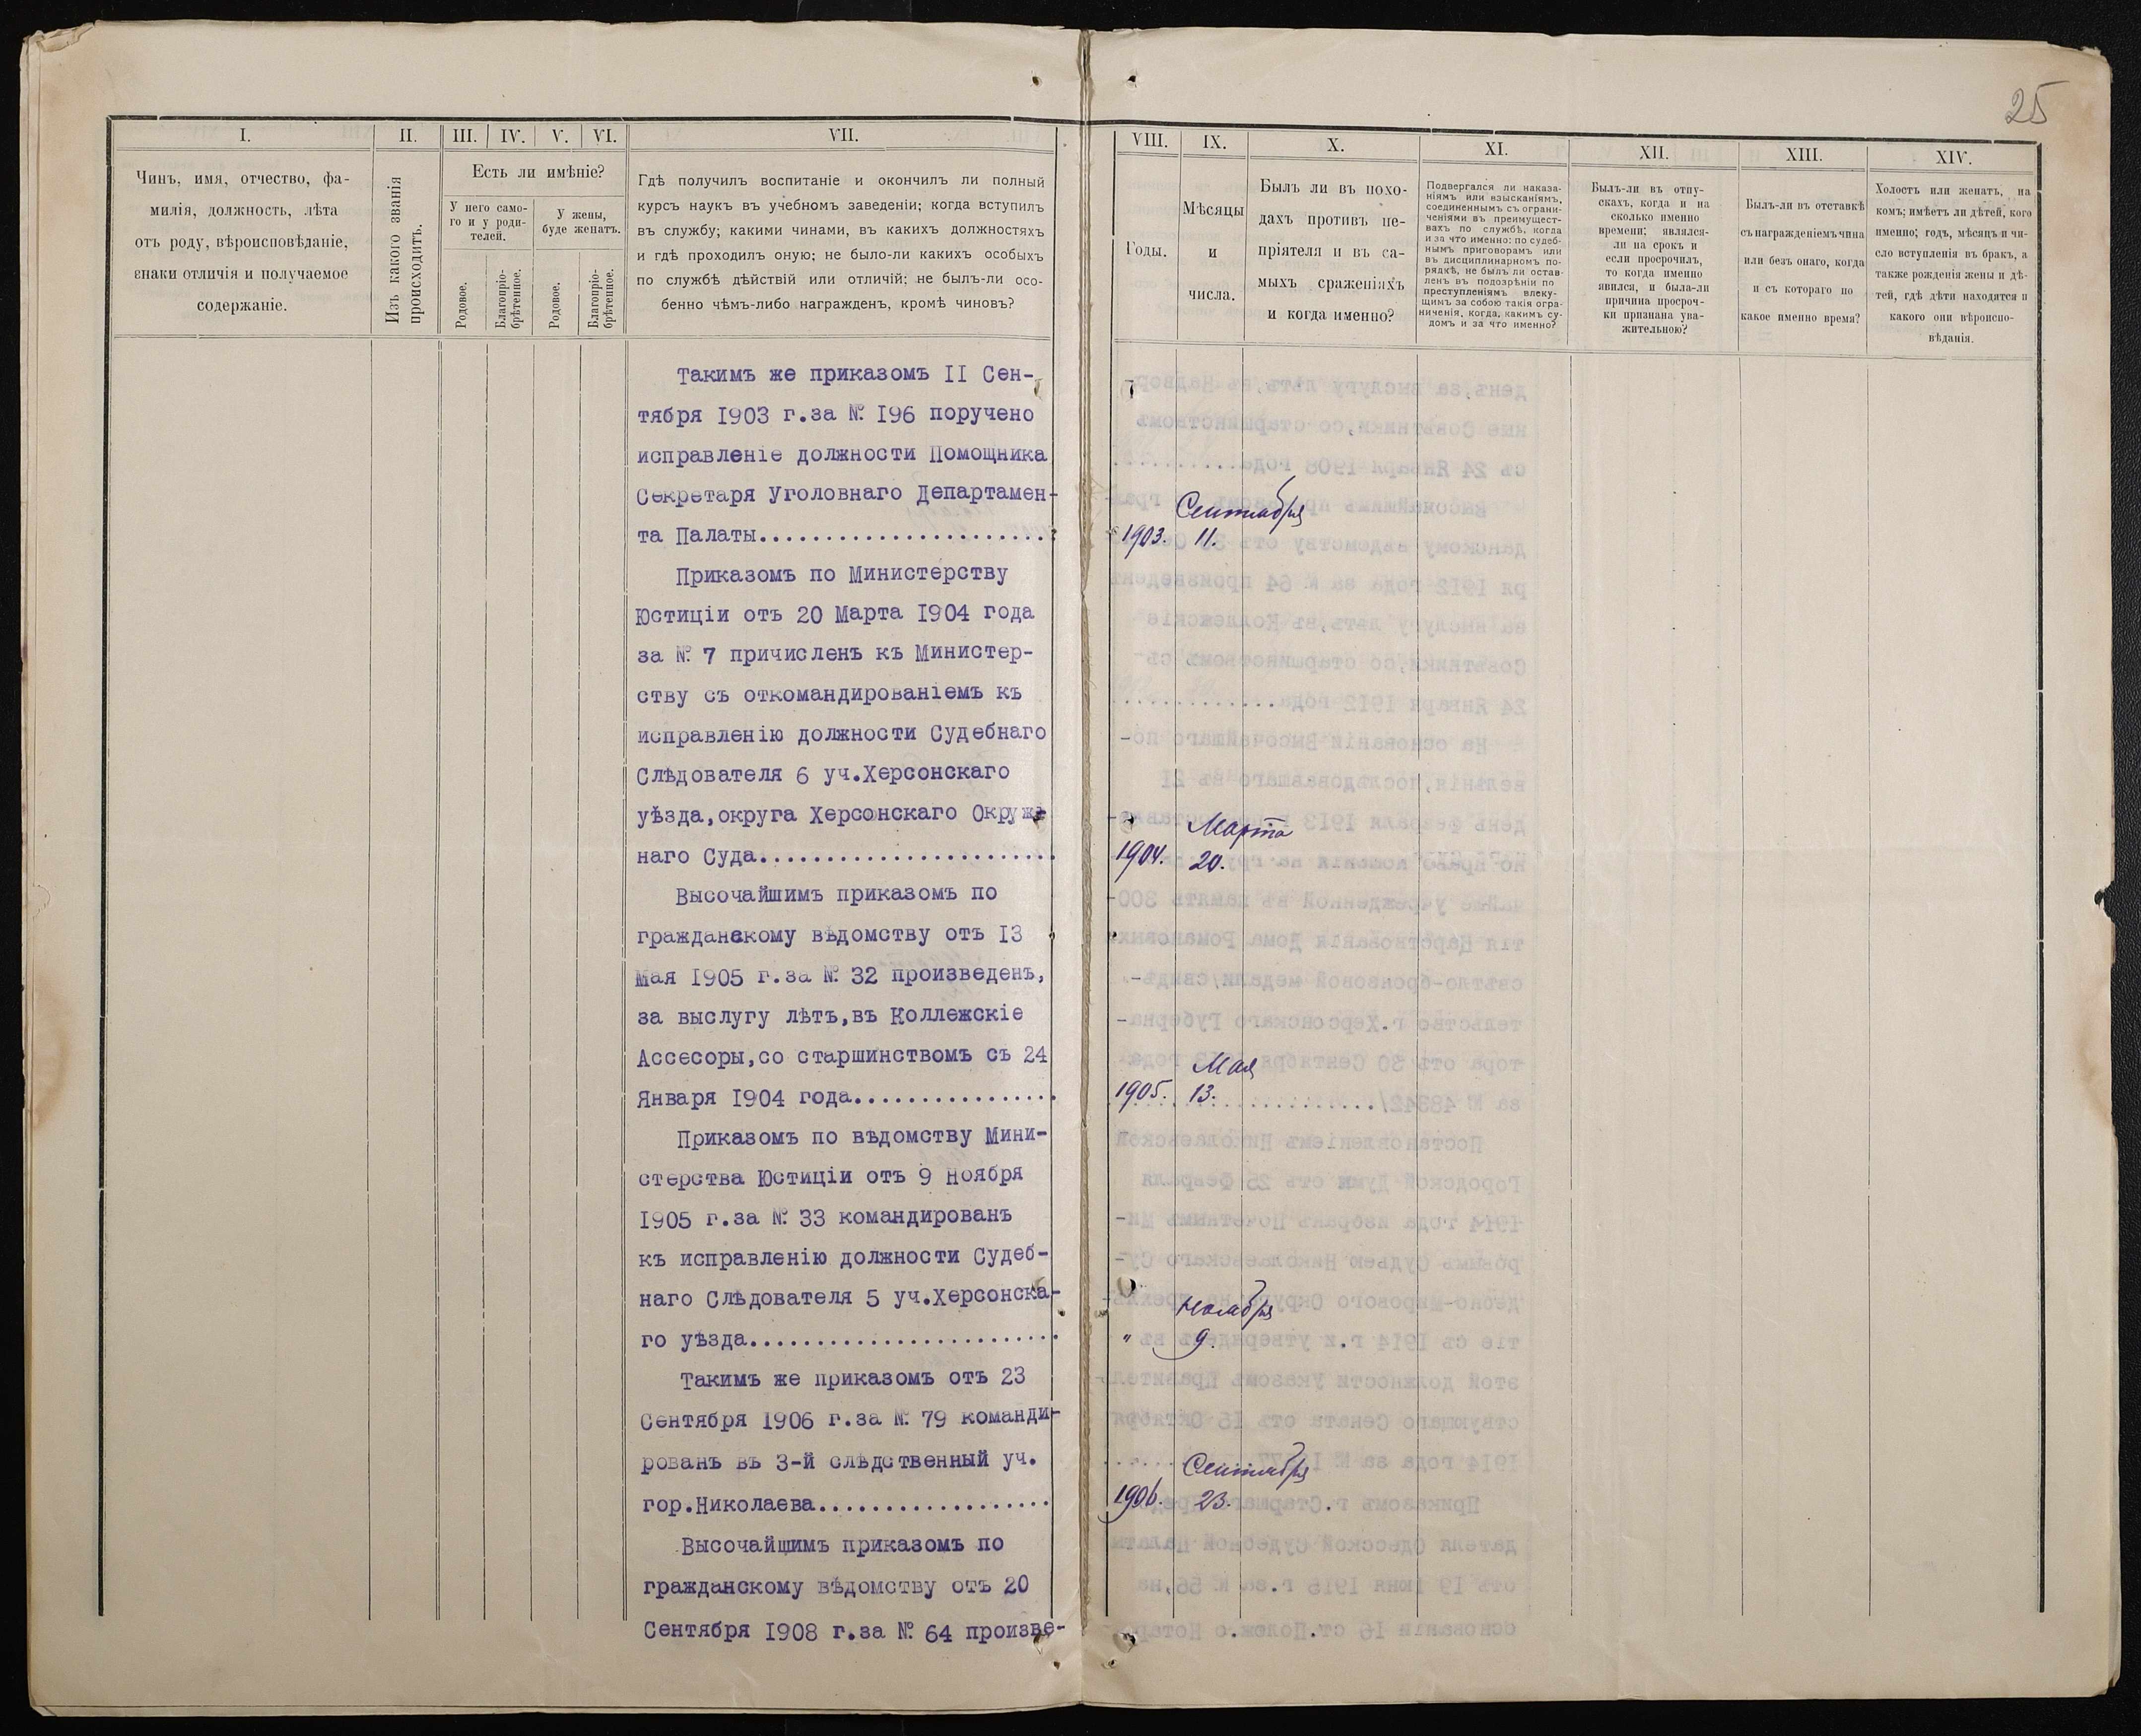 25
I.
II.
III.
IV.
V.
VI.
VII.
Чинъ, имя, отчество, фа-
милія, должность, лѣта
отъ роду, вѣроисповѣданіе,
знаки отличія и получаемое
содержаніе.
Изъ какого званія
происходитъ.
Есть ли имѣніе?
У него само-
го и у роди-
телей.
У жены,
буде женатъ.
Родовое.
Благопріо-
брѣтенное.
Родовое.
Благопріо-
брѣтенное.
Гдѣ получилъ воспитаніе и окончилъ ли полный
курсъ наукъ въ учебномъ заведеніи; когда вступилъ
въ службу; какими чинами, въ какихъ должностяхъ
и гдѣ проходилъ оную; не было-ли какихъ особыхъ
по службѣ дѣйствій или отличій; не былъ-ли осо-
бенно чѣмъ-либо награжденъ, кромѣ чиновъ?
Такимъ же приказомъ II Сен-
тября 1903 г.за №. 196 поручено
исправленіе должности Помощника
Секретаря Уголовнаго Департамен-
та Палаты........................
Приказомъ по Министерству
Юстиціи отъ 20 Марта 1904 года
за №. 7 причисленъ къ Министер-
ству съ откомандированіемъ къ
исправленію должности Судебнаго
Слѣдователя 6 уч.Херсонскаго
уѣзда,округа Херсонскаго Окруж-
наго Суда.........................
Высочайшимъ приказомъ по
гражданскому вѣдомству отъ I3
Мая 1905 г.за №. 32 произведенъ,
за выслугу лѣтъ,въ Коллежскіе
Ассесоры,со старшинствомъ съ 24
Января 1904 года.................
Приказомъ по вѣдомству Мини-
стерства Юстиціи отъ 9 Ноября
1905 г.за №. 33 командированъ
къ исправленію должности Судеб-
наго Слѣдователя 5 уч.Херсонска-
го уѣзда..........................
Такимъ же приказомъ отъ 23
Сентября 1906 г.за №. 79 команди-
рованъ въ 3-й слѣдственный уч.
гор.Николаева....................
Высочайшимъ приказомъ по
гражданскому вѣдомству отъ 20
Сентября 1908 г.за №. 64 произве-
VIII.
IX.
X.
XI.
XII.
XIII.
XIV.
Годы.
Мѣсяцы
и
числа.
Былъ ли въ похо-
дахъ противъ не-
пріятеля и въ са-
мыхъ сраженіяхъ
и когда именно?
Подвергался ли наказа-
ніямъ или взысканіямъ,
соединеннымъ съ ограни-
ченіями въ преимущест-
вахъ по службѣ, когда
и за что именно: по судеб-
нымъ приговорамъ или
въ дисциплинарномъ по-
рядкѣ, не былъ ли остав-
ленъ въ подозрѣніи по
преступленіямъ влеку-
щимъ за собою такія огра-
ниченія, когда, какимъ су-
домъ и за что именно?
Былъ-ли въ отпу-
скахъ, когда и на
сколько именно
времени; являлся-
ли на срокъ и
если просрочилъ,
то когда именно
явился, и была-ли
причина просроч-
ки признана ува-
жительною?
Былъ-ли въ отставкѣ
съ награжденіемъ чина
или безъ онаго, когда
и съ котораго по
какое именно время?
Холостъ или женатъ, на
комъ; имѣетъ ли дѣтей, кого
именно; годъ, мѣсяцъ и чи-
сло вступленія въ бракъ, а
также рожденія жены и дѣ-
тей, гдѣ дѣти находятся и
какого они вѣроиспо-
вѣданія.
Сентября
1903. 11.
Марта
1904. 20.
Мая
1905. 13.
Ноября
" 9.
Сентября
1906. 23.